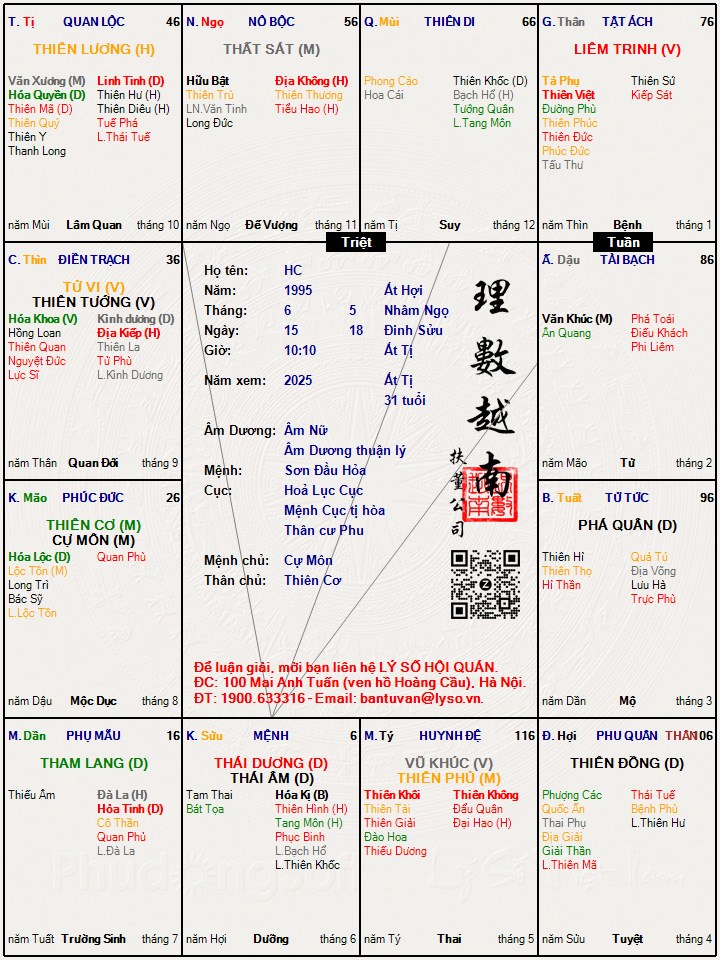 T. Tị QUAN LỘC 46
THIÊN LƯƠNG (H)
Văn Xương (M) Linh Tinh (D)
Hóa Quyền (D) Thiên Hư (H)
Thiên Mã (D) Thiên Diêu (H)
Thiên Quý Tuế Phá
Thiên Y L.Thái Tuế
Thanh Long
năm Mùi Lâm Quan tháng 10
N. Ngọ NÔ BỘC 56
THẤT SÁT (M)
Hữu Bật Địa Không (H)
Thiên Trù Thiên Thương
LN.Văn Tinh Tiểu Hao (H)
Long Đức
năm Ngọ Đế Vượng tháng 11
Q. Mùi THIÊN DI 66
Phong Cáo Thiên Khốc (D)
Hoa Cái Bạch Hổ (H)
Tướng Quân
L.Tang Môn
năm Tị Suy tháng 12
G. Thân TẬT ÁCH 76
LIÊM TRINH (V)
Tả Phụ Thiên Sứ
Thiên Việt Kiếp Sát
Đường Phù
Thiên Phúc
Thiên Đức
Phúc Đức
Tấu Thư
năm Thìn Bệnh tháng 1
Triệt
Tuần
C. Thìn ĐIỀN TRẠCH 36
TỬ VI (V)
THIÊN TƯỚNG (V)
Hóa Khoa (V) Kình dương (D)
Hồng Loan Địa Kiếp (H)
Thiên Quan Thiên La
Nguyệt Đức Tử Phù
Lực Sĩ L.Kình Dương
năm Thân Quan Đới tháng 9
Họ tên: HC
Năm: 1995 Ất Hợi
Tháng: 6 5 Nhâm Ngọ
Ngày: 15 18 Đinh Sửu
Giờ: 10:10 Ất Tị
Năm xem: 2025 Ất Tị
31 tuổi
Âm Dương: Âm Nữ
Âm Dương thuận lý
Mệnh: Sơn Đầu Hỏa
Cục: Hoả Lục Cục
Mệnh Cục tị hòa
Thân cư Phu
Mệnh chủ: Cự Môn
Thân chủ: Thiên Cơ
理數越南
扶董公司
Để luận giải, mời bạn liên hệ LÝ SỐ HỘI QUÁN.
ĐC: 100 Mai Anh Tuấn (ven hồ Hoàng Cầu), Hà Nội.
ĐT: 1900.633316 - Email: bantuvan@lyso.vn.
Ấ. Dậu TÀI BẠCH 86
Văn Khúc (M) Phá Toái
Ân Quang Điếu Khách
Phi Liêm
năm Mão Tử tháng 2
K. Mão PHÚC ĐỨC 26
THIÊN CƠ (M)
CỰ MÔN (M)
Hóa Lộc (D) Quan Phù
Lộc Tồn (M)
Long Trì
Bác Sỹ
L.Lộc Tồn
năm Dậu Mộc Dục tháng 8
B. Tuất TỬ TỨC 96
PHÁ QUÂN (D)
Thiên Hỉ Quả Tú
Thiên Thọ Địa Võng
Hỉ Thần Lưu Hà
Trực Phù
năm Dần Mộ tháng 3
M. Dần PHỤ MẪU 16
THAM LANG (D)
Thiếu Âm Đà La (H)
Hỏa Tinh (D)
Cô Thần
Quan Phủ
L.Đà La
năm Tuất Trường Sinh tháng 7
K. Sửu MỆNH 6
THÁI DƯƠNG (D)
THÁI ÂM (D)
Tam Thai Hóa Kị (B)
Bát Tọa Thiên Hình (H)
Tang Môn (H)
Phục Binh
L.Bạch Hổ
L.Thiên Khốc
năm Hợi Dưỡng tháng 6
M. Tý HUYNH ĐỆ 116
VŨ KHÚC (V)
THIÊN PHỦ (M)
Thiên Khôi Thiên Không
Thiên Tài Đẩu Quân
Thiên Giải Đại Hao (H)
Đào Hoa
Thiếu Dương
năm Tý Thai tháng 5
Đ. Hợi PHU QUÂN THÂN 106
THIÊN ĐỒNG (D)
Phượng Các Thái Tuế
Quốc Ấn Bệnh Phù
Thai Phụ L.Thiên Hư
Địa Giải
Giải Thần
L.Thiên Mã
năm Sửu Tuyệt tháng 4